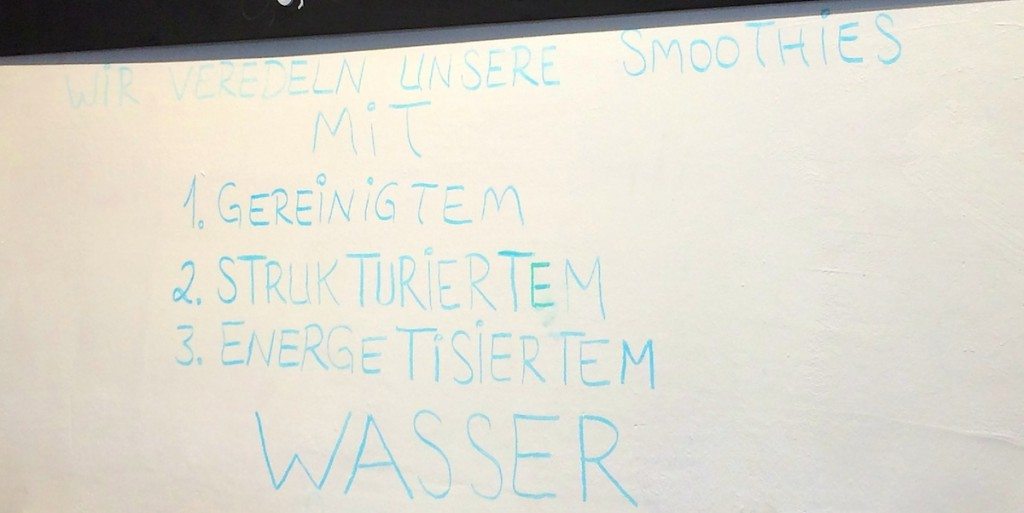 WIR VEREDELN UNSERE SMOOTHIES
MIT
1. GEREINIGTEM
2. STRUKTURIERTEM
3. ENERGETISIERTEM
WASSER